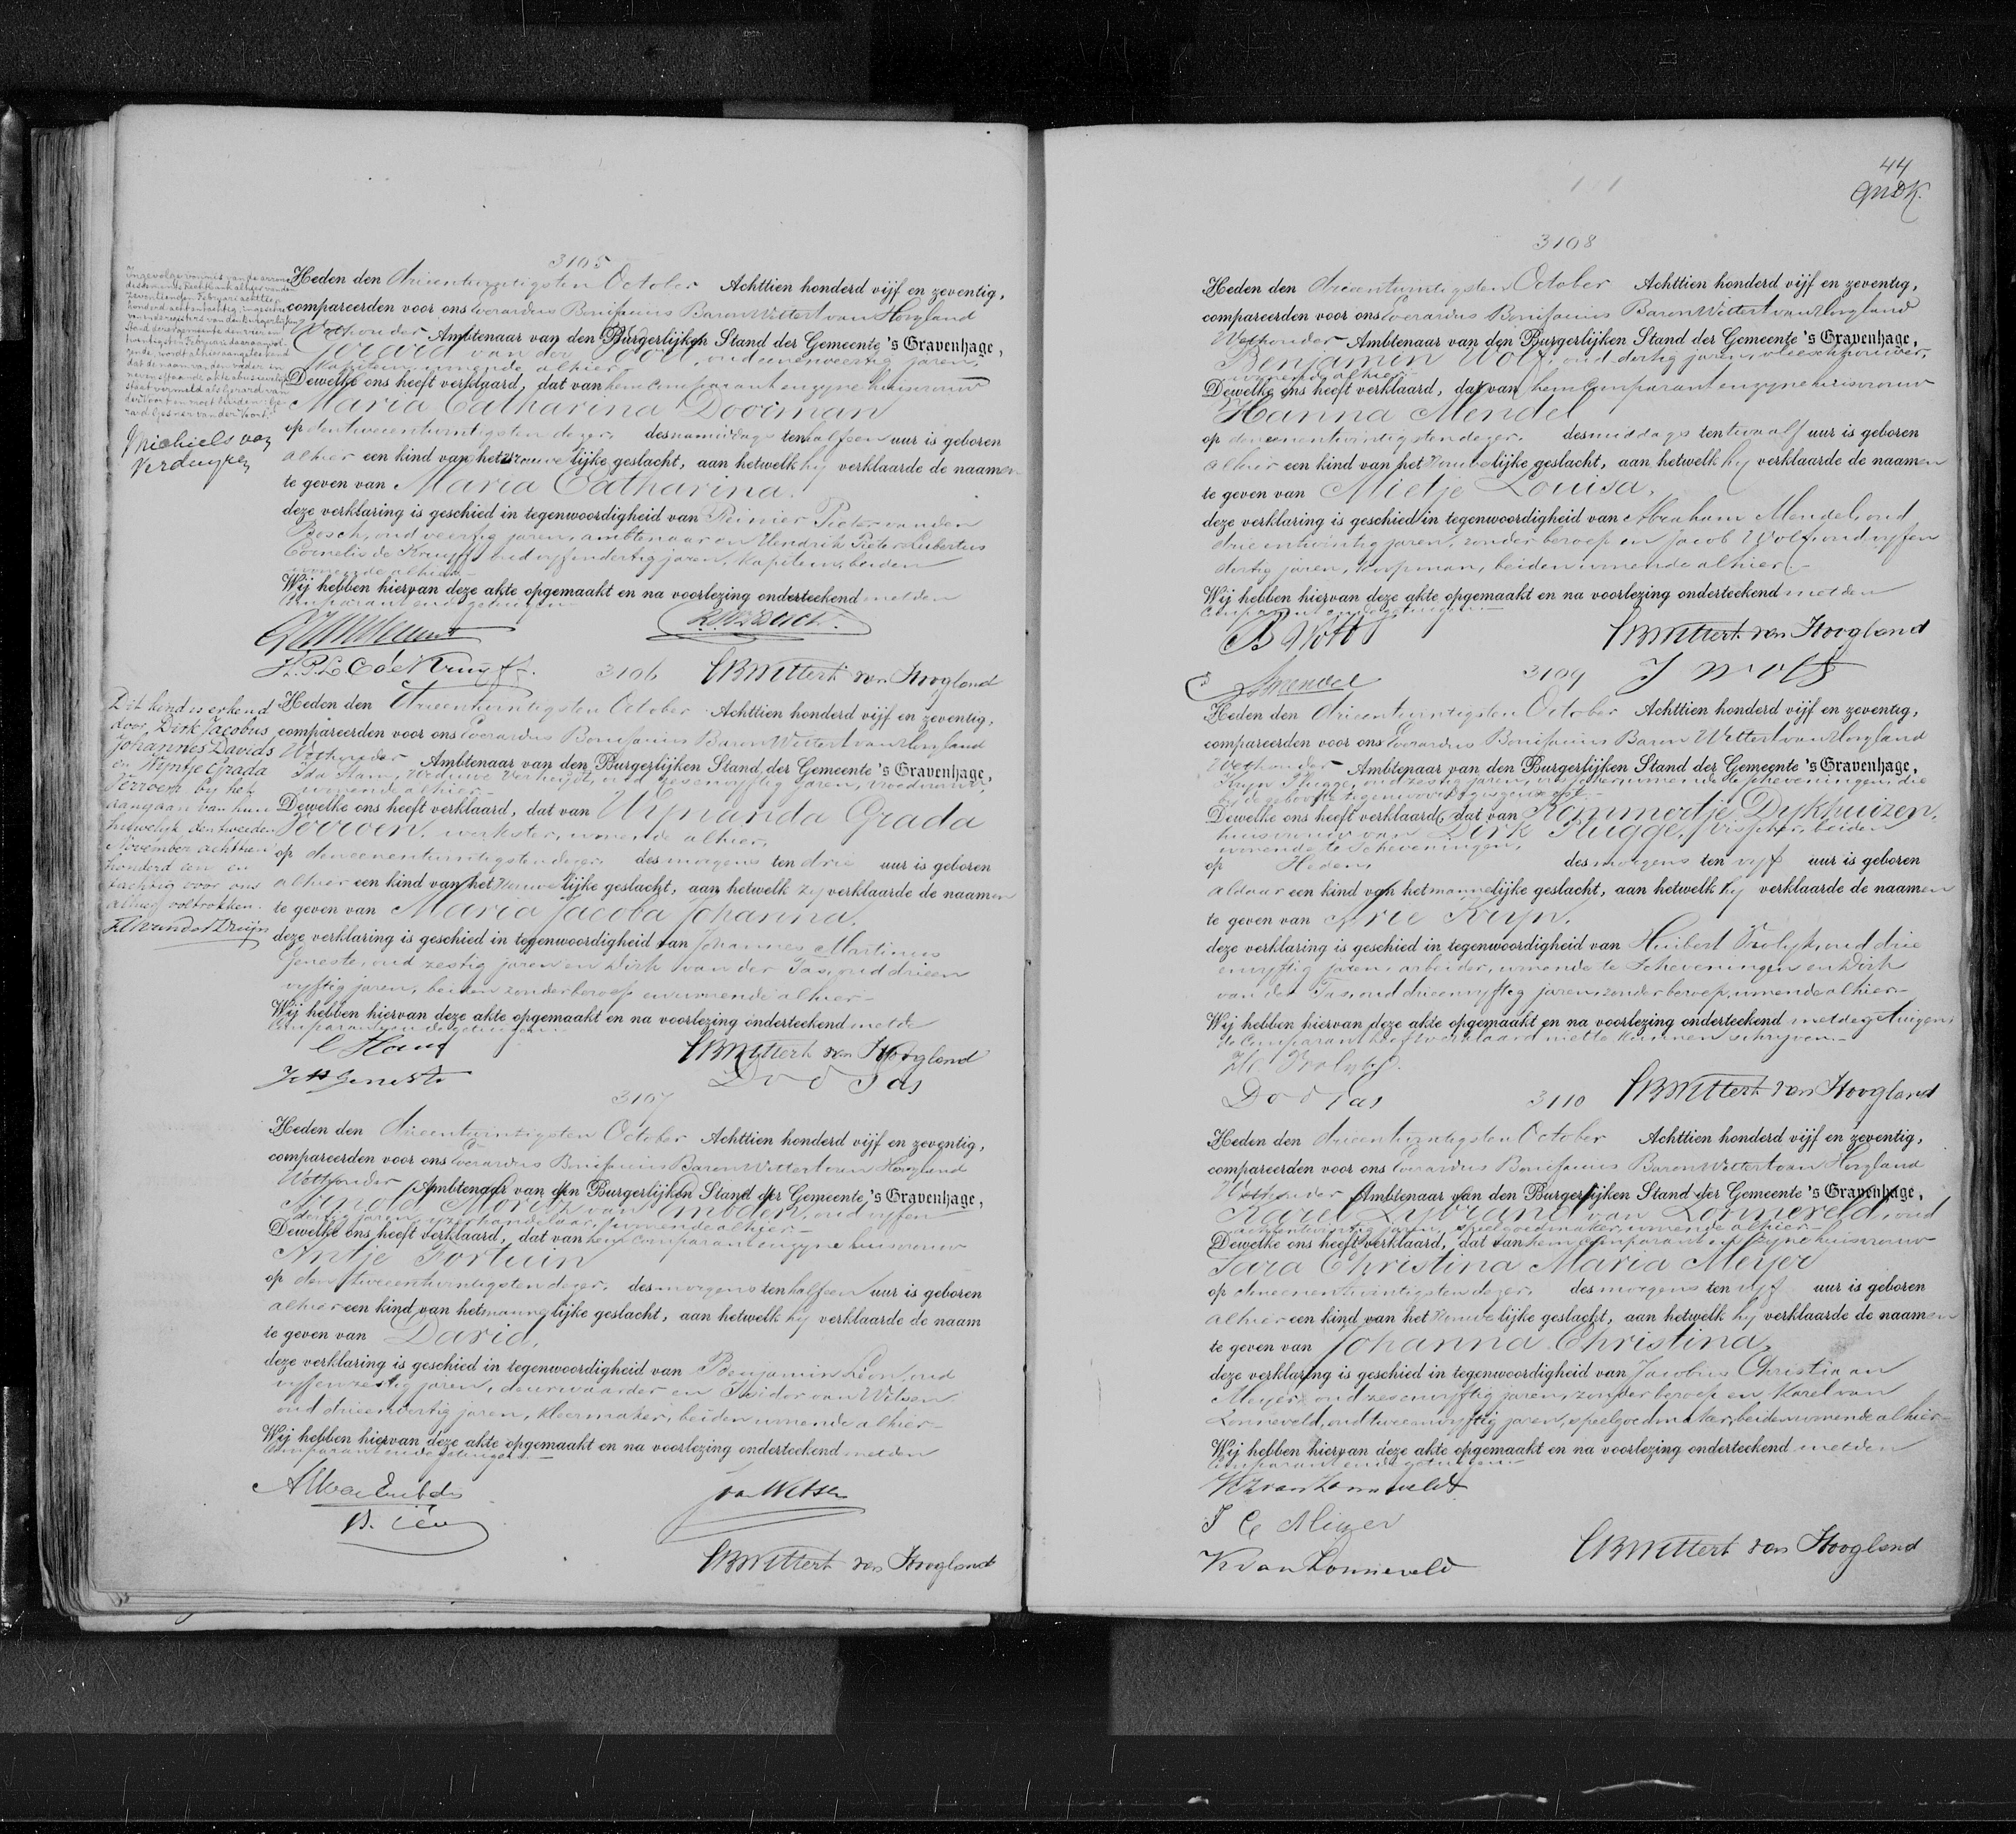 3105
Heden den drieentwintigsten October Achttien honderd vijf en zeventig,
compareerden voor ons Everardus Bonifacius Baron Wittert van Hoogland
Wethouder Ambtenaar van den Burgerlijken Stand der Gemeente 's Gravenhage,
Gerard van der Voort, oud eenenveertig jaren,
Kapitein, wonende alhier
Dewelke ons heeft verklaard, dat van hem Comparant en zyne huisvrouw
Maria Catharina Dooiman
op den tweeentwintigsten dezer, des namiddags ten half een uur is geboren
alhier een kind van het vrouwelijke geslacht, aan hetwelk hy verklaarde de naamen
te geven van Maria Catharina.
deze verklaring is geschied in tegenwoordigheid van Reinier Pieter van den
Bosch, oud veertig jaren, ambtenaar en Hendrik Pieter Lubertus
Cornelis de Kruyff, oud vyfendertig jaren, Kapitein, beiden
wonende alhier
Wij hebben hiervan deze akte opgemaakt en na voorlezing onderteekend met den
Comparant en de getuigen
H.P.L.C. de Kruyff.
EBWittert van Hoogland
Ingevolge vonnis van de arron-
dissements Rechtbank alhier van den
zeventienden Februari achttien
honderd acht en tachtig, ingeschreven
in de registers van den burgerlijken
Stand dezer gemeente den vier en
twintigsten Februari daaraanvol-
gende, wordt alhier aangeteekend
dat de naam van den vader in
nevenstaande akte abusievelijk
staat vermeld als Gerard van
der Voort en moet luiden: Ge-
rard Gesner van der Voort.
Michiels van
Verduynen
3106
Heden den drieentwintigsten October Achttien honderd vijf en zeventig,
compareerden voor ons Everardus Bonifacius Baron Wittert van Hoogland
Wethouder Ambtenaar van den Burgerlijken Stand der Gemeente 's Gravenhage,
Ida Ham, Weduwe Verheyst, oud zesenvyftig jaren, vroedvrouw,
wonende alhier
Dewelke ons heeft verklaard, dat van Wijnanda Grada
Perroen, werkster, wonende alhier,
op den eenentwintigsten dezer, des morgens ten drie uur is geboren
alhier een kind van het vrouwelijke geslacht, aan hetwelk zy verklaarde de naamen
te geven van Maria Jacoba Johanna,
deze verklaring is geschied in tegenwoordigheid van Johannes Martinus
Geneste, oud zestig jaren en Dirk van der Tas, oud drieen
vyftig jaren, beiden zonder beroep en wonende alhier
Wij hebben hiervan deze akte opgemaakt en na voorlezing onderteekend met de
Comparante en de getuigen
EBWittert van Hoogland
JM Geneste
D v d Tas
Dit kind is erkend
door Dirk Jacobus
Johannes Davids
en Wyntje Grada
Perroen by het
aangaan van hun
huwelyk den tweeden
November achttien
honderd een en
tachtig voor ons
alhier voltrokken.
3107
Heden den drieentwintigsten October Achttien honderd vijf en zeventig,
compareerden voor ons Everardus Bonifacius Baron Wittert van Hoogland
Wethouder Ambtenaar van den Burgerlijken Stand der Gemeente 's Gravenhage,
Arnold Moritz van Embden, oud vyfen
dertig jaren, yzerhandelaar, wonende alhier
Dewelke ons heeft verklaard, dat van hem Comparant en zyne huisvrouw
Antje Fortuin
op den tweeentwintigsten dezer, des morgens ten half een uur is geboren
alhier een kind van het mannelijke geslacht, aan hetwelk hy verklaarde de naam
te geven van David,
deze verklaring is geschied in tegenwoordigheid van Benjamin Léon, oud
vyfenzestig jaren, deurwaarder en Isidor van Witsen
oud drieenveertig jaren, Kleermaker, beiden wonende alhier
Wij hebben hiervan deze akte opgemaakt en na voorlezing onderteekend met den
Comparant en de getuigen
AMvan Embden
J van Witsen
B. Léon
EBWittert van Hoogland
44
3108
Heden den drieentwintigsten October Achttien honderd vijf en zeventig,
compareerden voor ons Everardus Bonifacius Baron Wittert van Hoogland
Wethouder Ambtenaar van den Burgerlijken Stand der Gemeente 's Gravenhage,
Benjamin Wolf, oud dertig jaren, vleeschhouwer,
wonende alhier
Dewelke ons heeft verklaard, dat van hem Comparant en zyne huisvrouw
Hanna Mendel
op den eenentwintigsten dezer, des middags ten twaalf uur is geboren
alhier een kind van het vrouwelijke geslacht, aan hetwelk hy verklaarde de naamen
te geven van Mietje Louisa,
deze verklaring is geschied in tegenwoordigheid van Abraham Mendel, oud
drieentwintig jaren, zonder beroep en Jacob Wolf, oud vyfen
dertig jaren, Koopman, beiden wonende alhier
Wij hebben hiervan deze akte opgemaakt en na voorlezing onderteekend met den
Comparant en de getuigen
B Wolf
EBWittert van Hoogland
J Wolff
A Mendel
3109
Heden den drieentwintigsten October Achttien honderd vijf en zeventig,
compareerden voor ons Everardus Bonifacius Baron Wittert van Hoogland
Wethouder Ambtenaar van den Burgerlijken Stand der Gemeente 's Gravenhage,
Kryn Plugge, oud zestig jaren, visscher, wonende te Scheveningen, die
by de geboorte tegenwoordig is geweest
Dewelke ons heeft verklaard, dat van Kommertje Dykhuizen,
huisvrouw van Dirk Plugge, visscher, beiden
wonende te Scheveningen,
op Heden, des morgens ten vyf uur is geboren
aldaar een kind van het mannelijke geslacht, aan hetwelk hy verklaarde de naamen
te geven van Arie Kryn,
deze verklaring is geschied in tegenwoordigheid van Huibert Vrolyk, oud drie
envyftig jaren, arbeider, wonende te Scheveningen en Dirk
van der Tas, oud drieenvyftig jaren, zonder beroep, wonende alhier
Wij hebben hiervan deze akte opgemaakt en na voorlezing onderteekend met de getuigen,
de Comparant heeft verklaard niet te kunnen schryven
H Vrolyk
D v d Tas
EBWittert van Hoogland
3110
Heden den drieentwintigsten October Achttien honderd vijf en zeventig,
compareerden voor ons Everardus Bonifacius Baron Wittert van Hoogland
Wethouder Ambtenaar van den Burgerlijken Stand der Gemeente 's Gravenhage,
Karel Lybrand van Lonneveld, oud
achtentwintig jaren, speelgoedmaker, wonende alhier
Dewelke ons heeft verklaard, dat van hem Comparant en zyne huisvrouw
Sara Christina Maria Meyer
op den eenentwintigsten dezer, des morgens ten vyf uur is geboren
alhier een kind van het vrouwelijke geslacht, aan hetwelk hy verklaarde de naamen
te geven van Johanna Christina,
deze verklaring is geschied in tegenwoordigheid van Jacobus Christiaan
Meyer, oud zesenvyftig jaren, zonder beroep en Karel van
Lonneveld, oud tweeenvyftig jaren, speelgoedmaker, beiden wonende alhier
Wij hebben hiervan deze akte opgemaakt en na voorlezing onderteekend met den
Comparant en de getuigen
KL van Lonneveld
J C Meijer
K van Lonneveld
EBWittert van Hoogland